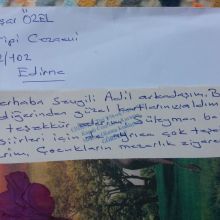 şar ÖZEL
ipi Cezaevi
2/102
Edirne
erhaba Sevgili Adil arkadaşım. B
diğerinden güzel kartlarınızı aldım
teşekkür ederim. Süleyman ba
şiirleri için de ayrıca çok teş
rim, Çocukların mezarlık ziyare